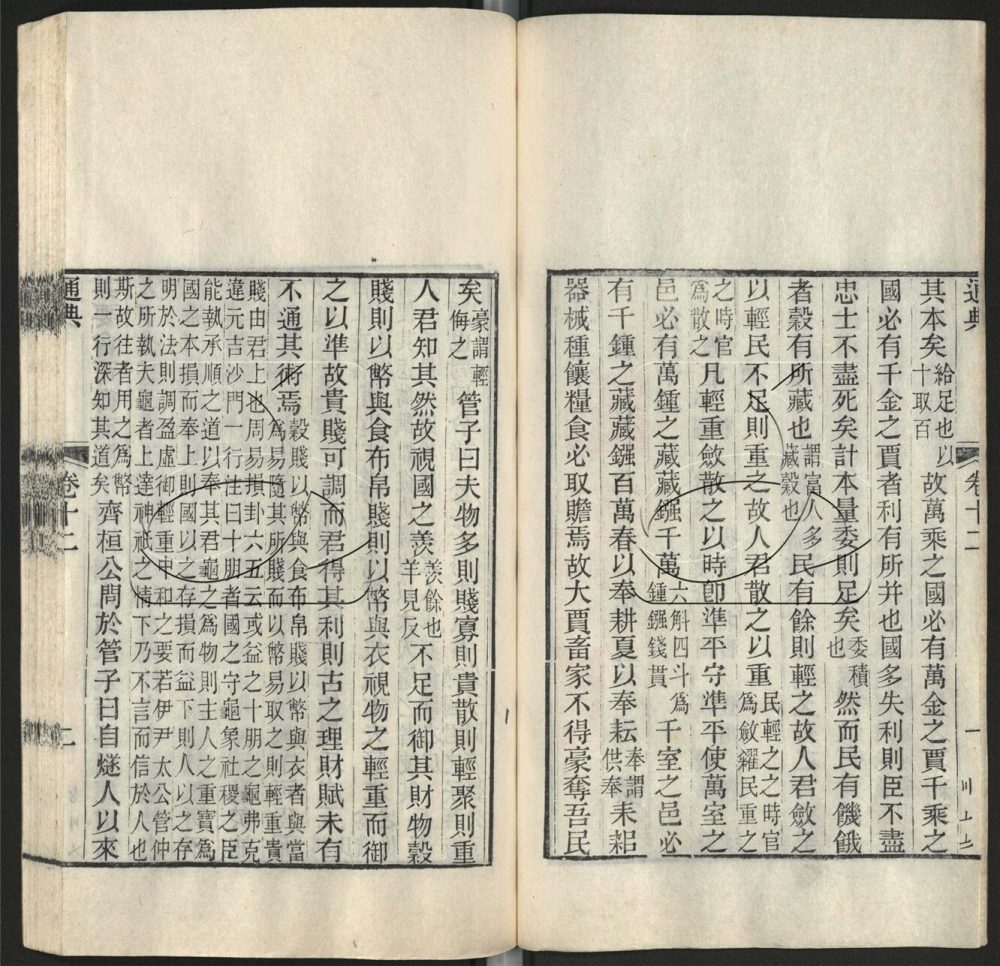 通典
卷十二
一
其本矣給足也以十取百故萬乘之國必有萬金之賈千乘之
國必有千金之賈者利有所并也國多失利則臣不盡
忠士不盡死矣計本量委則足矣委積也然而民有饑餓
者穀有所藏也謂富人多藏穀也民有餘則輕之故人君斂之
以輕民不足則重之故人君散之以重民輕之之時官爲斂糴民重之
之時官爲散之凡輕重斂散之以時卽準平守準平使萬室之
邑必有萬鍾之藏藏鏹千萬六斛四斗爲鍾鏹錢貫千室之邑必
有千鍾之藏藏鏹百萬春以奉耕夏以奉耘奉謂供奉耒耜
器械種饟糧食必取贍焉故大賈畜家不得豪奪吾民
矣豪謂輕侮之管子曰夫物多則賤寡則貴散則輕聚則重
人君知其然故視國之羨羨餘也羊見反不足而御其財物穀
賤則以幣與食布帛賤則以幣與衣視物之輕重而御
之以準故貴賤可調而君得其利則古之理財賦未有
不通其術焉穀賤以幣與食布帛賤以幣與衣者與當爲易隨其所賤而以幣易取之則輕重貴
賤由君上也周易損卦六五云或益之十朋之龜弗克違元吉沙門一行注曰十朋者國之守龜象社稷之臣
能執承順之道以奉其君龜之爲物則主人之重寶爲國之本損而奉上則國以之存損而益下則人以之存
明於法則調盈虛御輕重中和之要若伊尹太公管仲之所執夫龜者上達神祇之情下乃不言而信於人也
斯故往者用之爲幣則一行深知其道矣齊桓公問於管子曰自燧人以來
通典
卷十二
二